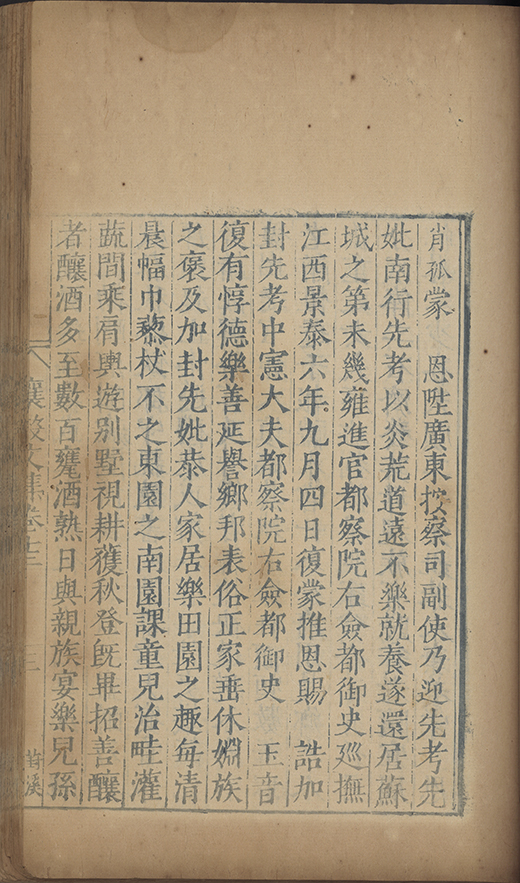 肖孤蒙　恩陞廣東按察司副使乃迎先考先
妣南行先考以炎荒道遠不樂就養遂還居蘇
城之第未幾雍進官都察院右僉都御史廵撫
江西景泰六年九月四日復蒙推恩賜　誥加
封先考中憲大夫都察院右僉都御史　玉音
復有惇德樂善延譽鄉邦表俗正家垂休嫺族
之褒及加封先妣恭人家居樂田園之趣每清
晨幅巾藜杖不之東園之南園課童兒治畦灌
蔬間乘肩輿遊别墅視耕穫秋登旣畢招善釀
者釀酒多至數百甕酒熟日與親族宴樂兒孫
襄毅文集卷十三
三